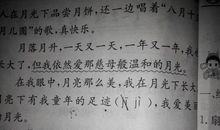 人在月光下品尝月饼，还一边唱着“八月十
月儿圆”的歌，真快乐。
月落月升，一天又一天，一年又一年，我
长大了，但我依然爱那慈母般温和的月光。
在我眼中，月亮那么美，我在月光下长大
月亮下有我童年的足迹（jì ji），我爱美丽
的月光。
1.